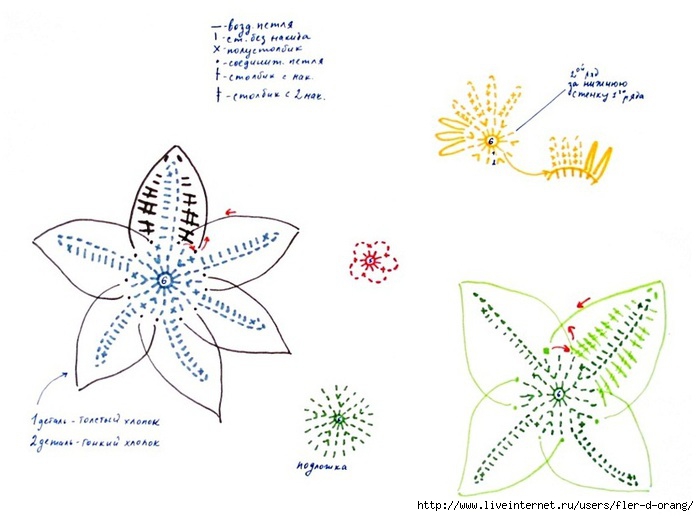 — - возд. петля
ı - ст. без накида
x - полустолбик
• - соединит. петля
† - столбик с нак.
‡ - столбик с 2 нак.
2ой ряд
за нижнюю
стенку 1го ряда
6
1
6
6
6
6
1 деталь - толстый хлопок
2 деталь - тонкий хлопок
подложка
http://www.liveinternet.ru/users/fler-d-orang/